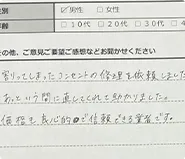 ☑男性 □女性
□10代 □20代 □30代 □4
その他、ご意見ご要望ご感想などお聞かせください
割ってしまったコンセントの修理を依頼しました
あっという間に直してくれて助かりました。
価格も良心的で信頼できる業者です。